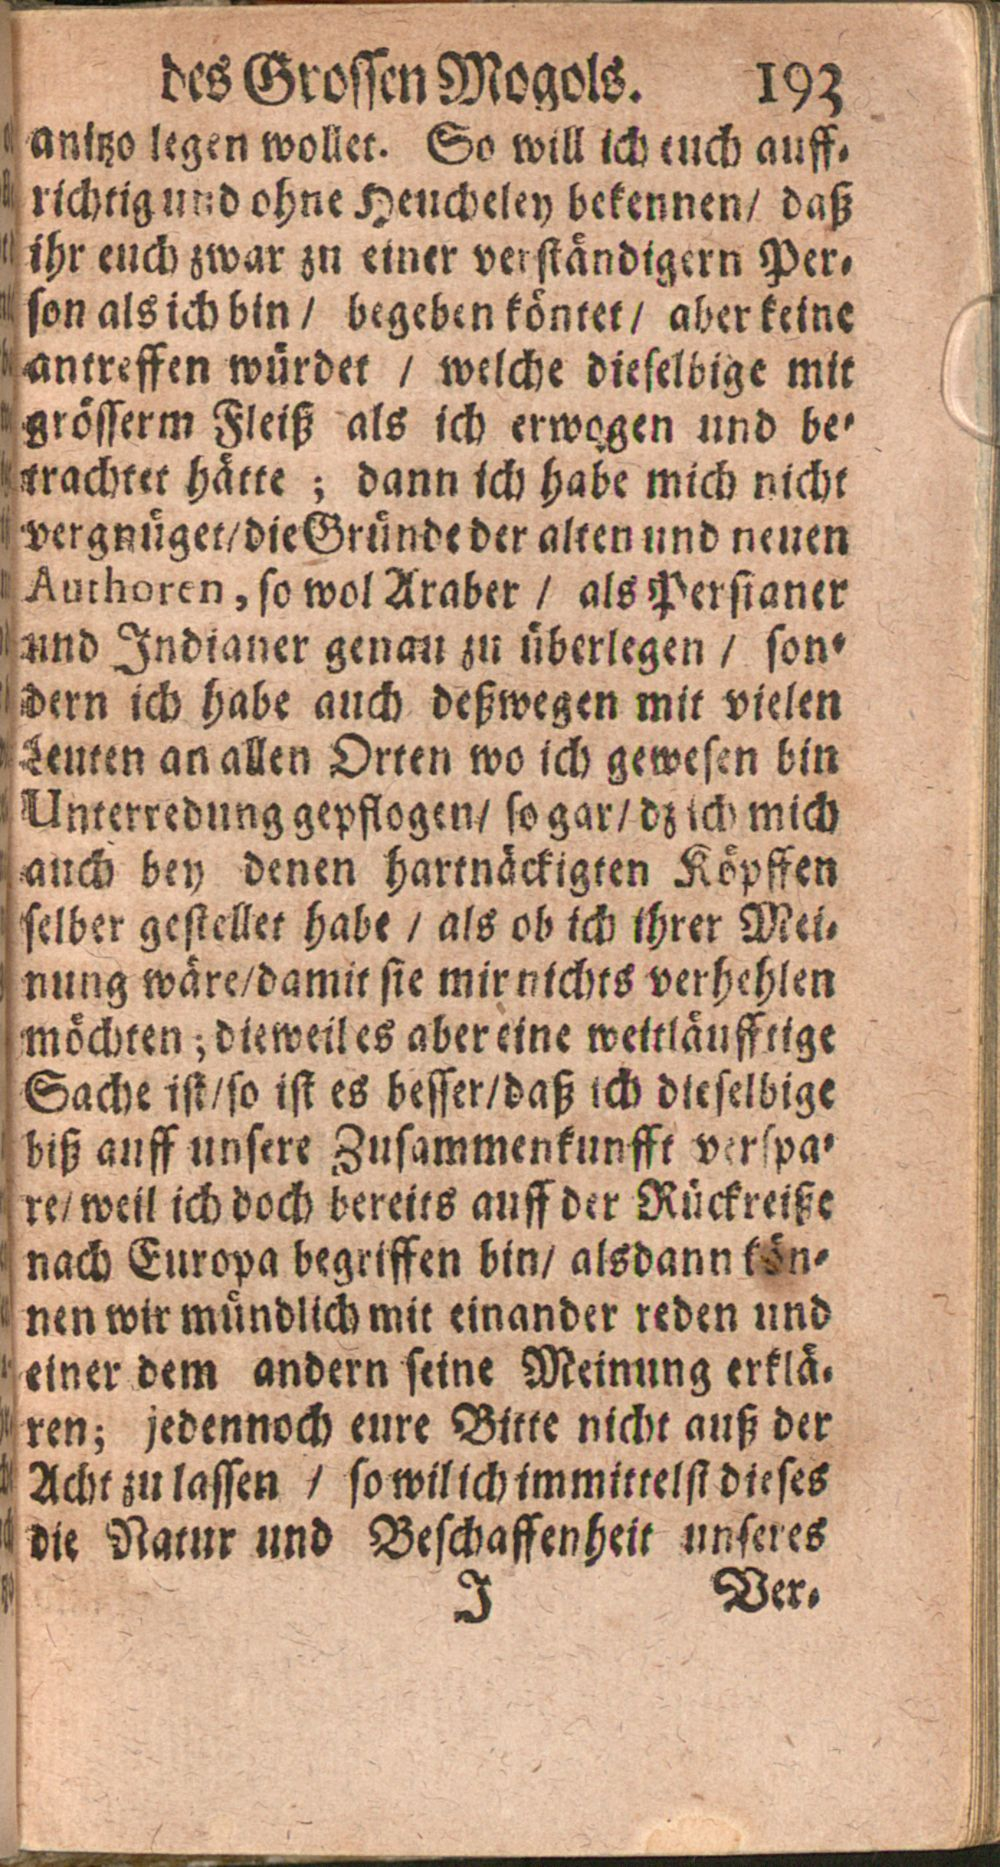 des Grossen Mogols. 193
anitzo legen wollet. So will ich euch auff-
richtig und ohne Heucheley bekennen/ daß
ihr euch zwar zu einer verständigern Per-
son als ich bin / begeben köntet / aber keine
antreffen würdet / welche dieselbige mit
grösserm Fleiß als ich erwogen und be-
trachtet hätte ; dann ich habe mich nicht
vergnüget/die Gründe der alten und neuen
Authoren, so wol Araber / als Persianer
und Indianer genau zu überlegen / son-
dern ich habe auch deßwegen mit vielen
Leuten an allen Orten wo ich gewesen bin
Unterredung gepflogen/ so gar/ dz ich mich
auch bey denen hartnäckigten Köpffen
selber gestellet habe / als ob ich ihrer Mei-
nung wäre/damit sie mir nichts verhehlen
möchten ; dieweil es aber eine weitläufftige
Sache ist/so ist es besser/daß ich dieselbige
biß auff unsere Zusammenkunfft verspa-
re/ weil ich doch bereits auff der Rückreiße
nach Europa begriffen bin/ alsdann kön-
nen wir mündlich mit einander reden und
einer dem andern seine Meinung erklä-
ren; jedennoch eure Bitte nicht auß der
Acht zu lassen / so wil ich immittelst dieses
die Natur und Beschaffenheit unseres
I Ver-